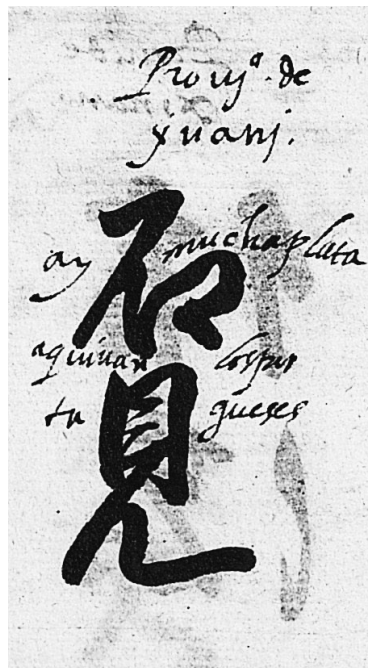 Prouj.ª de
yuanj.
石見
ay mucha plata
aqui uan los por
tu gueses